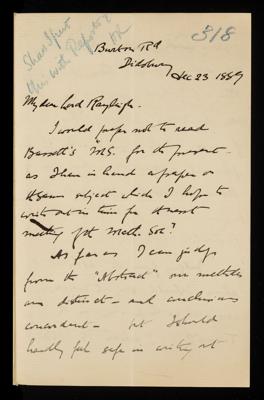 318
Shall I send
this with Report or
Burton Rd
Didsbury
Dec 23 1889
My dear Lord Rayleigh.
I would prefer not to read
Bassett's MS. for the present -
as I have in hand a paper on
the same subject which I hope to
write out in time for the next
meeting of the Math. Soc?
As far as I can judge
from the "Abstract" our methods
are distinct - and conclusions
concordant - but I should
hardly feel safe in writing out